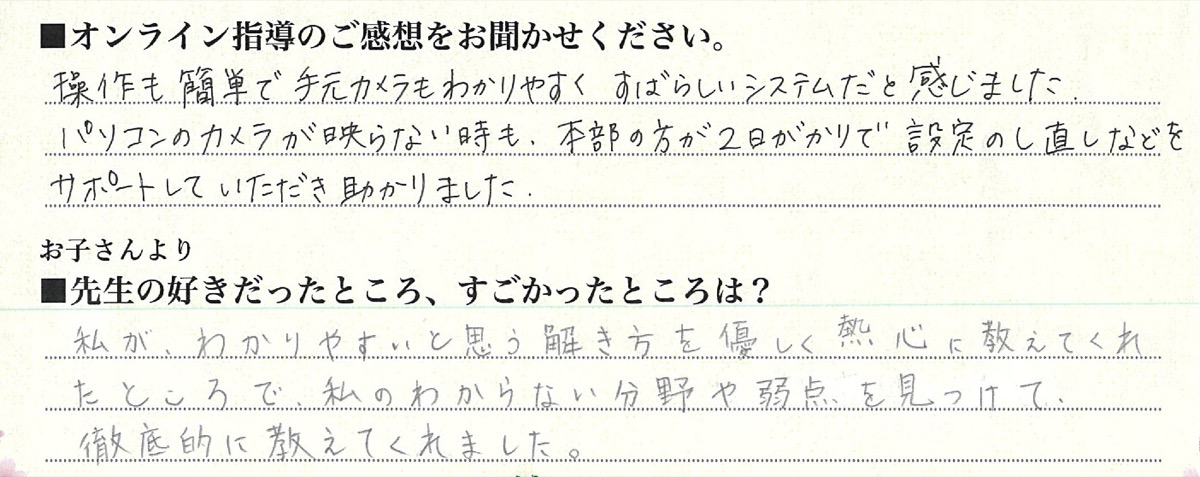 ■オンライン指導のご感想をお聞かせください。
操作も簡単で手元カメラもわかりやすく すばらしいシステムだと感じました.
パソコンのカメラが映らない時も、本部の方が2日がかりで設定のし直しなどを
サポートしていただき助かりました.
お子さんより
■先生の好きだったところ、すごかったところは？
私が、わかりやすいと思う解き方を優しく熱心に教えてくれ
たところで、私のわからない分野や弱点を見つけて、
徹底的に教えてくれました。